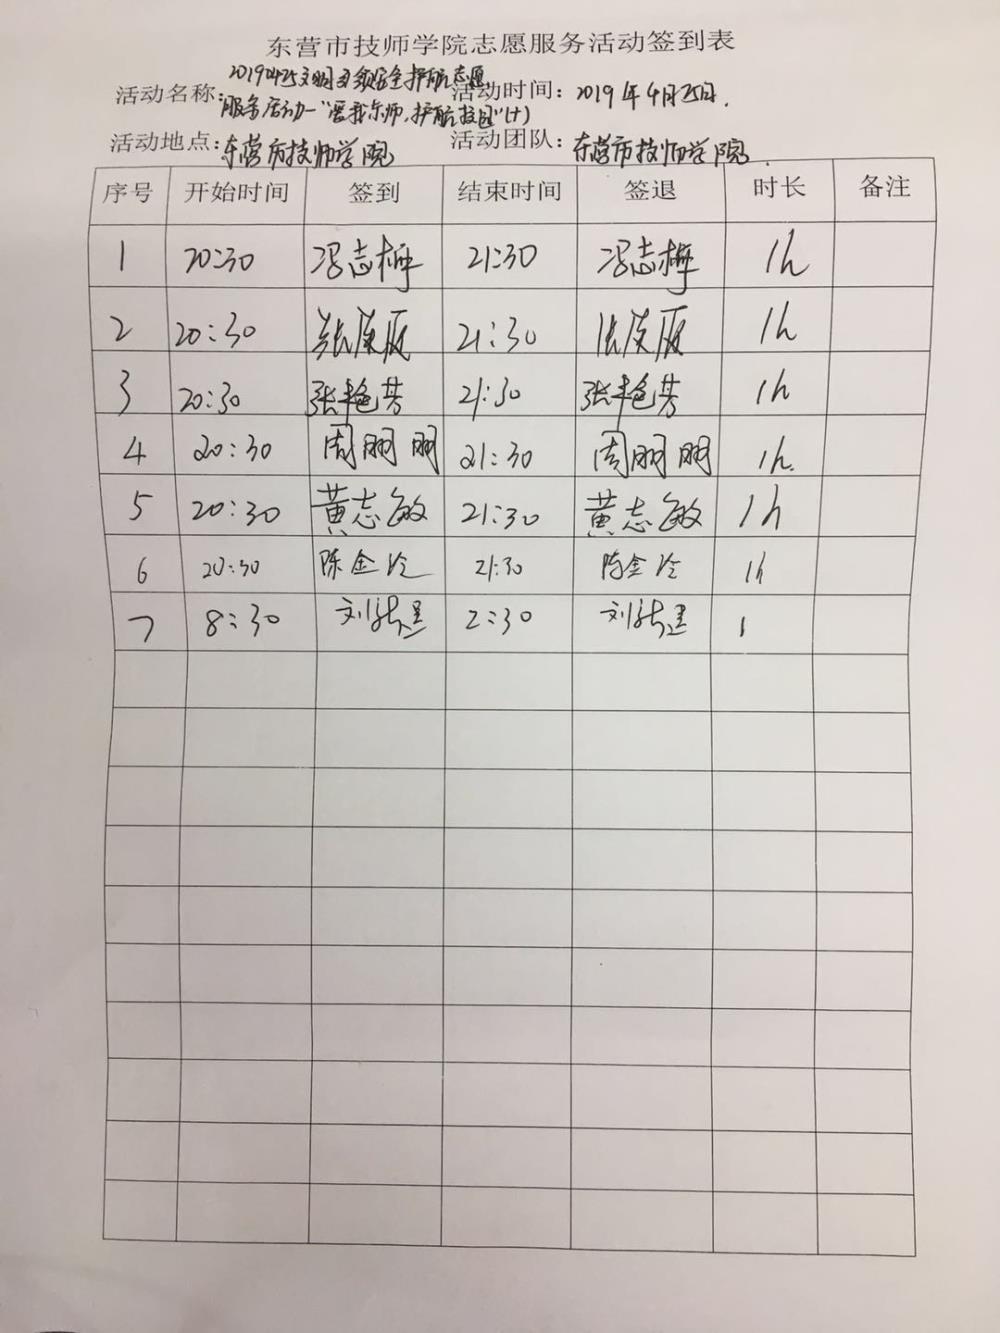 东营市技师学院志愿服务活动签到表
活动名称: 20190425文明 安全护航志愿 活动时间: 2019年4月25日.
服务活动—"爱我东师,护航技园"(十)
活动地点: 东营市技师学院 活动团队: 东营市技师学院
序号 开始时间 签到 结束时间 签退 时长 备注
1 20:30 冯志梅 21:30 冯志梅 1h
2 20:30 21:30 1h
3 20:30 张艳芳 21:30 张艳芳 1h
4 20:30 周丽丽 21:30 周丽丽 1h.
5 20:30 黄志敏 21:30 黄志敏 1h
6 20:30 陈金 21:30 陈金 1h
7 8:30 刘 2:30 刘 1